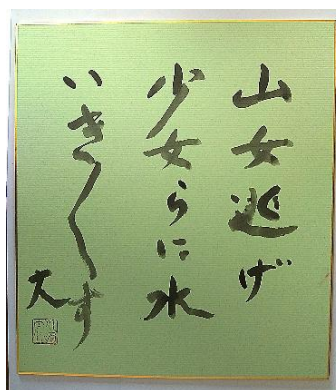 山女逃げ
少女らに水
いき〱す
大